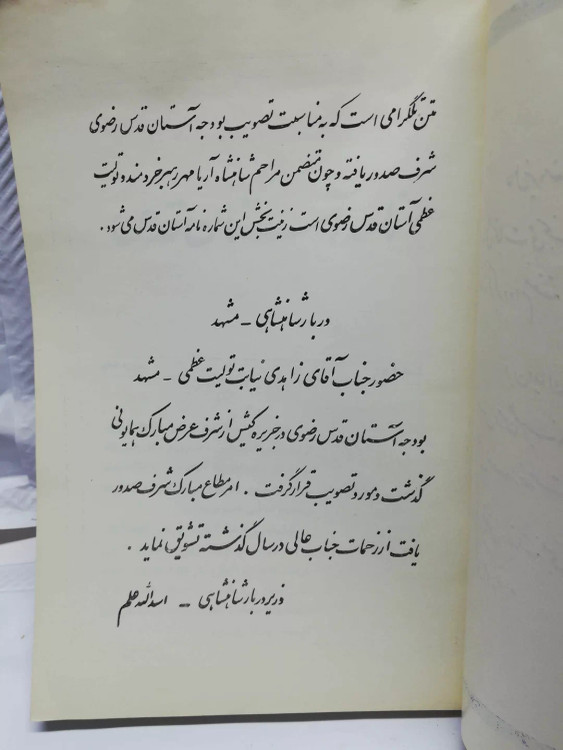 متن تلگرامی است که به مناسبت تصویب بودجه آستان قدس رضوی
شرف صدور یافته و چون متضمن مراحم شاهنشاه آریامهر رهبر خردمند و تولیت
عظمی آستان قدس رضوی است زینت بخش این شماره نامه آستان قدس می شود .
دربار شاهنشاهی - مشهد
حضور جناب آقای زاهدی نیابت تولیت عظمی - مشهد
بودجه آستان قدس رضوی در جزیره کیش از شرف عرض مبارک همایونی
گذشت و مورد تصویب قرار گرفت . امر مطاع مبارک شرف صدور
یافت از زحمات جناب عالی در سال گذشته تشویق نماید .
وزیر دربار شاهنشاهی - اسدالله علم